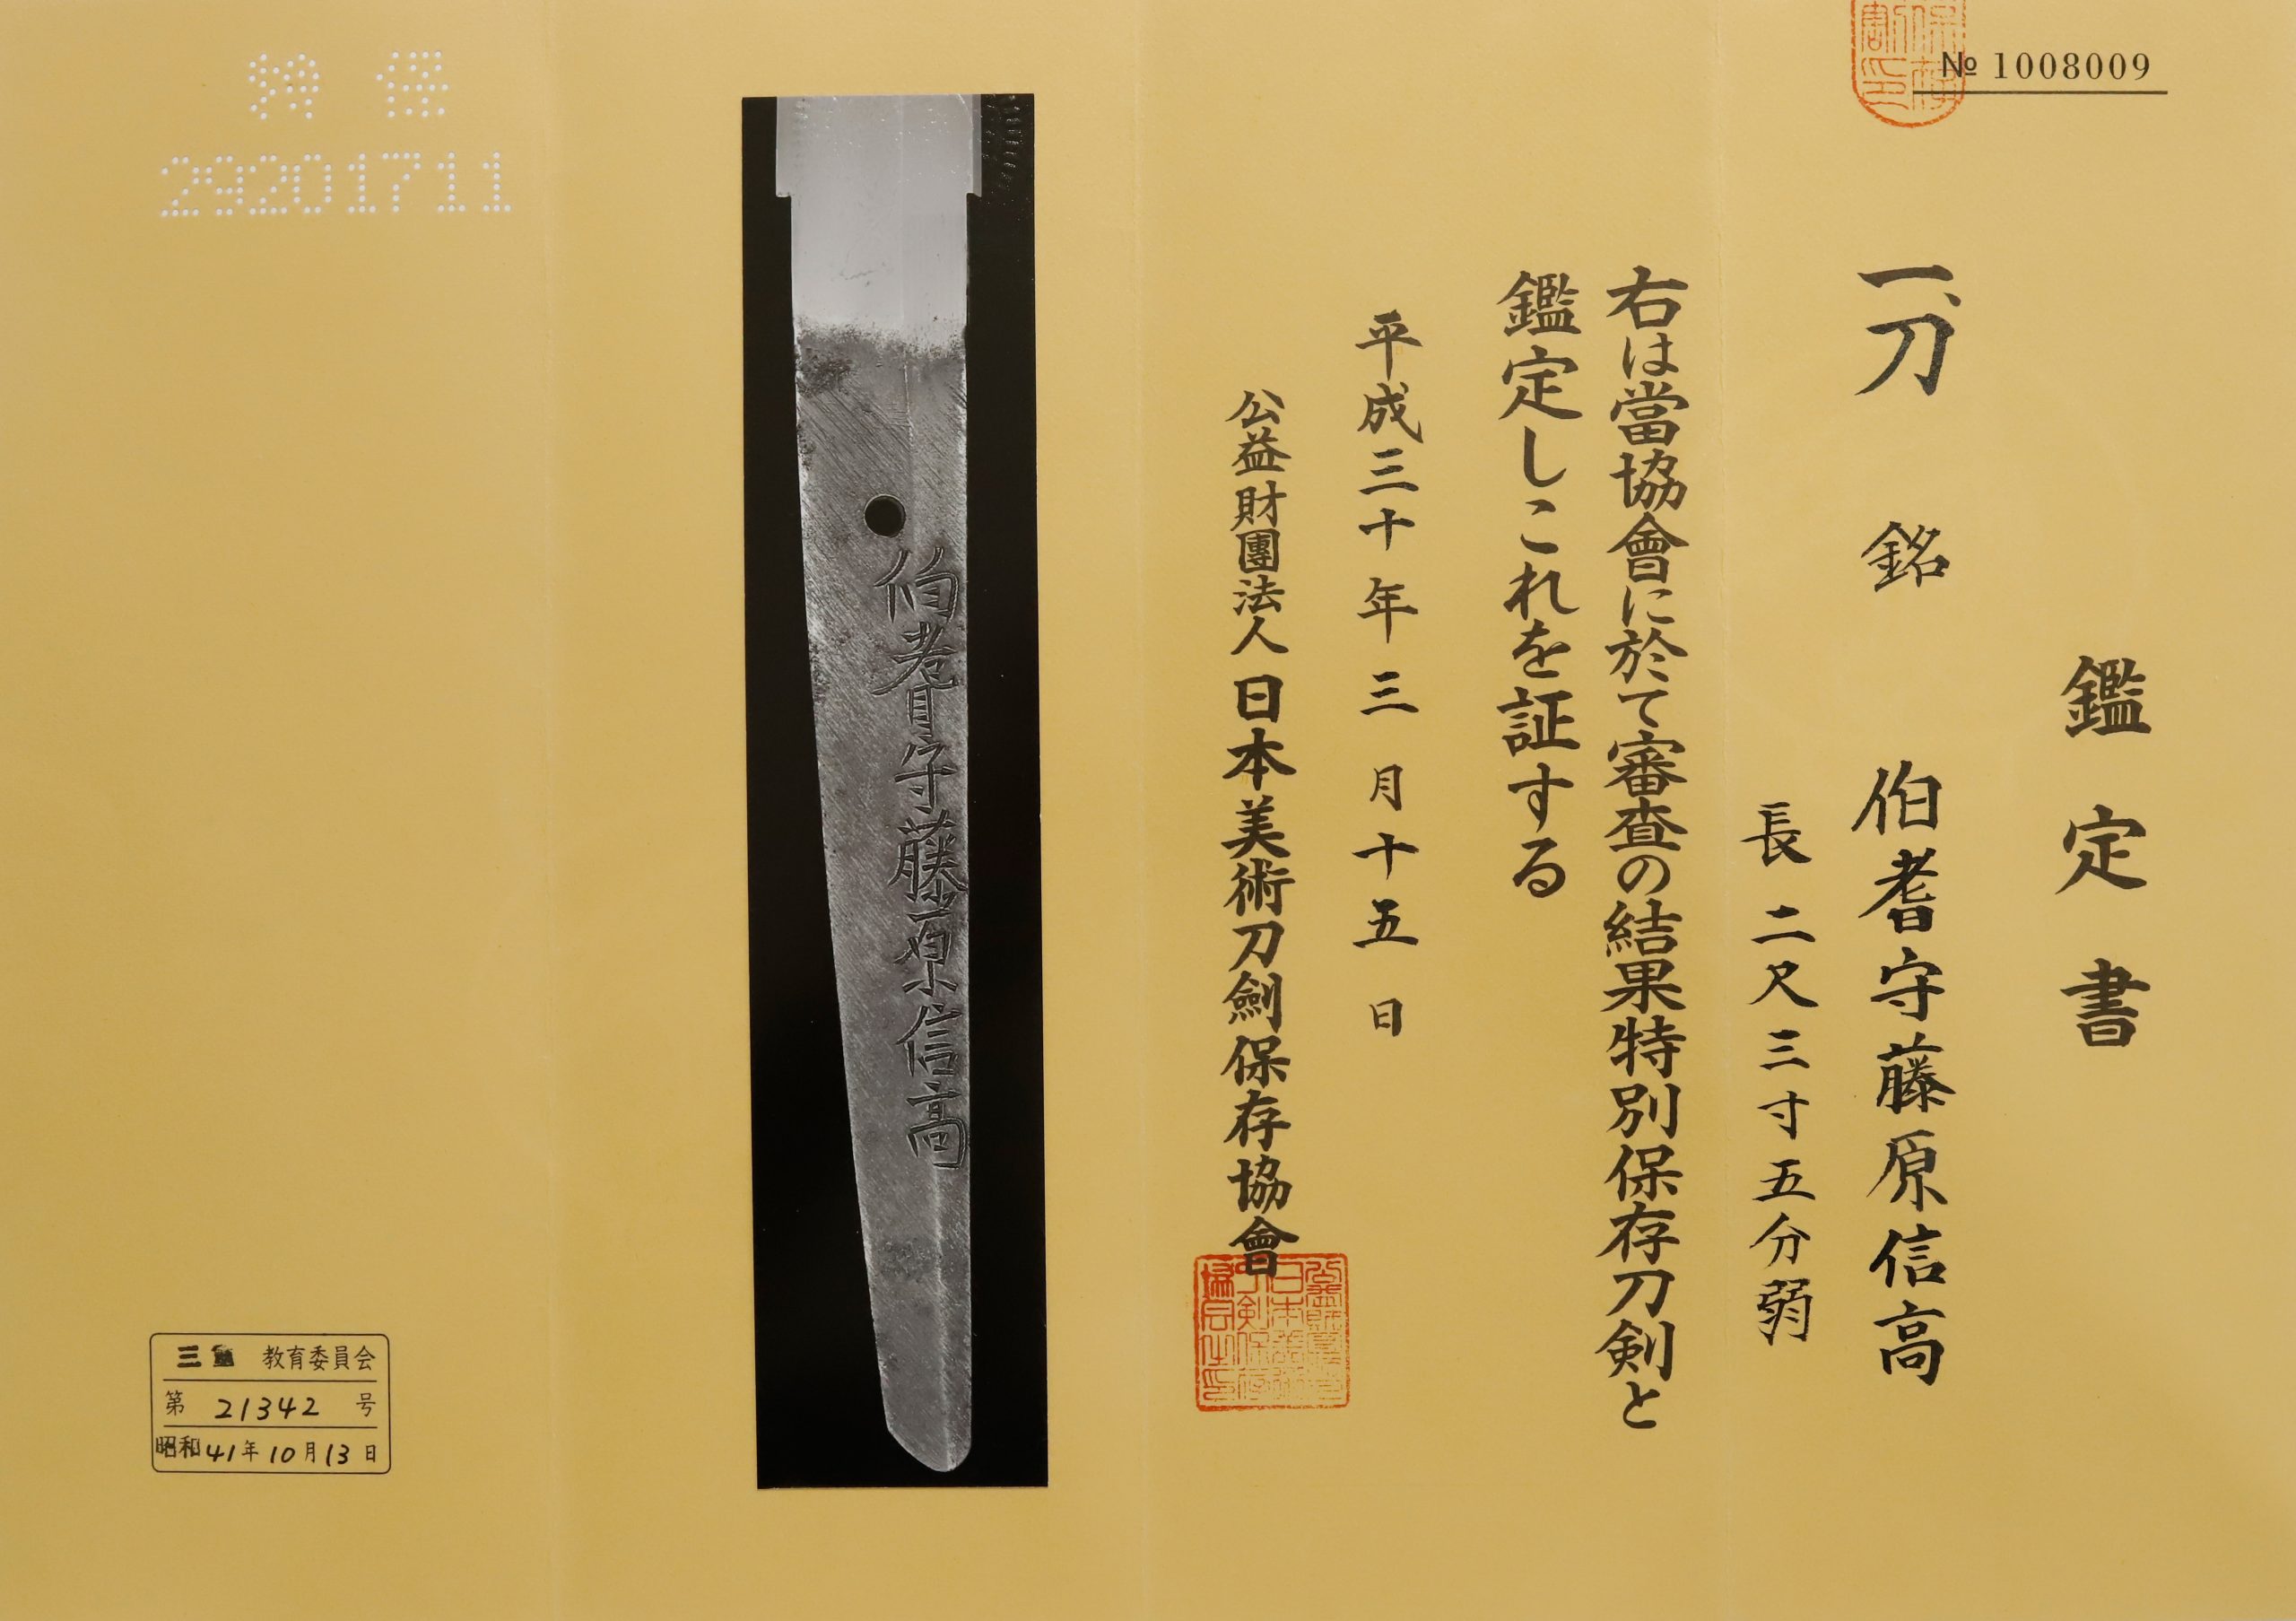 № 1008009
鑑定書
一、刀 銘 伯耆守藤原信高
長 二尺三寸五分弱
右は當協會に於て審査の結果特別保存刀剣と
鑑定しこれを証する
平成三十年三月十五日
公益財團法人 日本美術刀劍保存協會
伯耆守藤原信高
特保
29201711
三重 教育委員会
第 21342 号
昭和41年10月13日